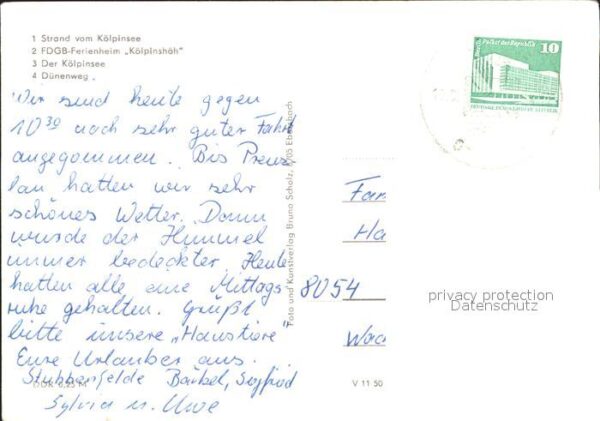 1 Strand vom Kölpinsee
2 FDGB-Ferienheim „Kölpinshöh"
3 Der Kölpinsee
4 Dünenweg
Berlin, Palast der Republik
10
Wir sind heute gegen
10³⁰ nach sehr guter Fahrt
angekommen. Bis Prenz-
lau hatten wir sehr
schönes Wetter. Dann
wurde der Himmel
immer bedeckter. Heute
hatten alle eine Mittags-
ruhe gehalten. Grüßt
bitte unsere „Haustiere"
Eure Urlauber aus
Stubbenfelde Bärbel, Siegfried
Sylvia u. Uwe
Foto und Kunstverlag Bruno Scholz,
Fam
Ha
8054
Wac
privacy protection
Datenschutz
V 11 50